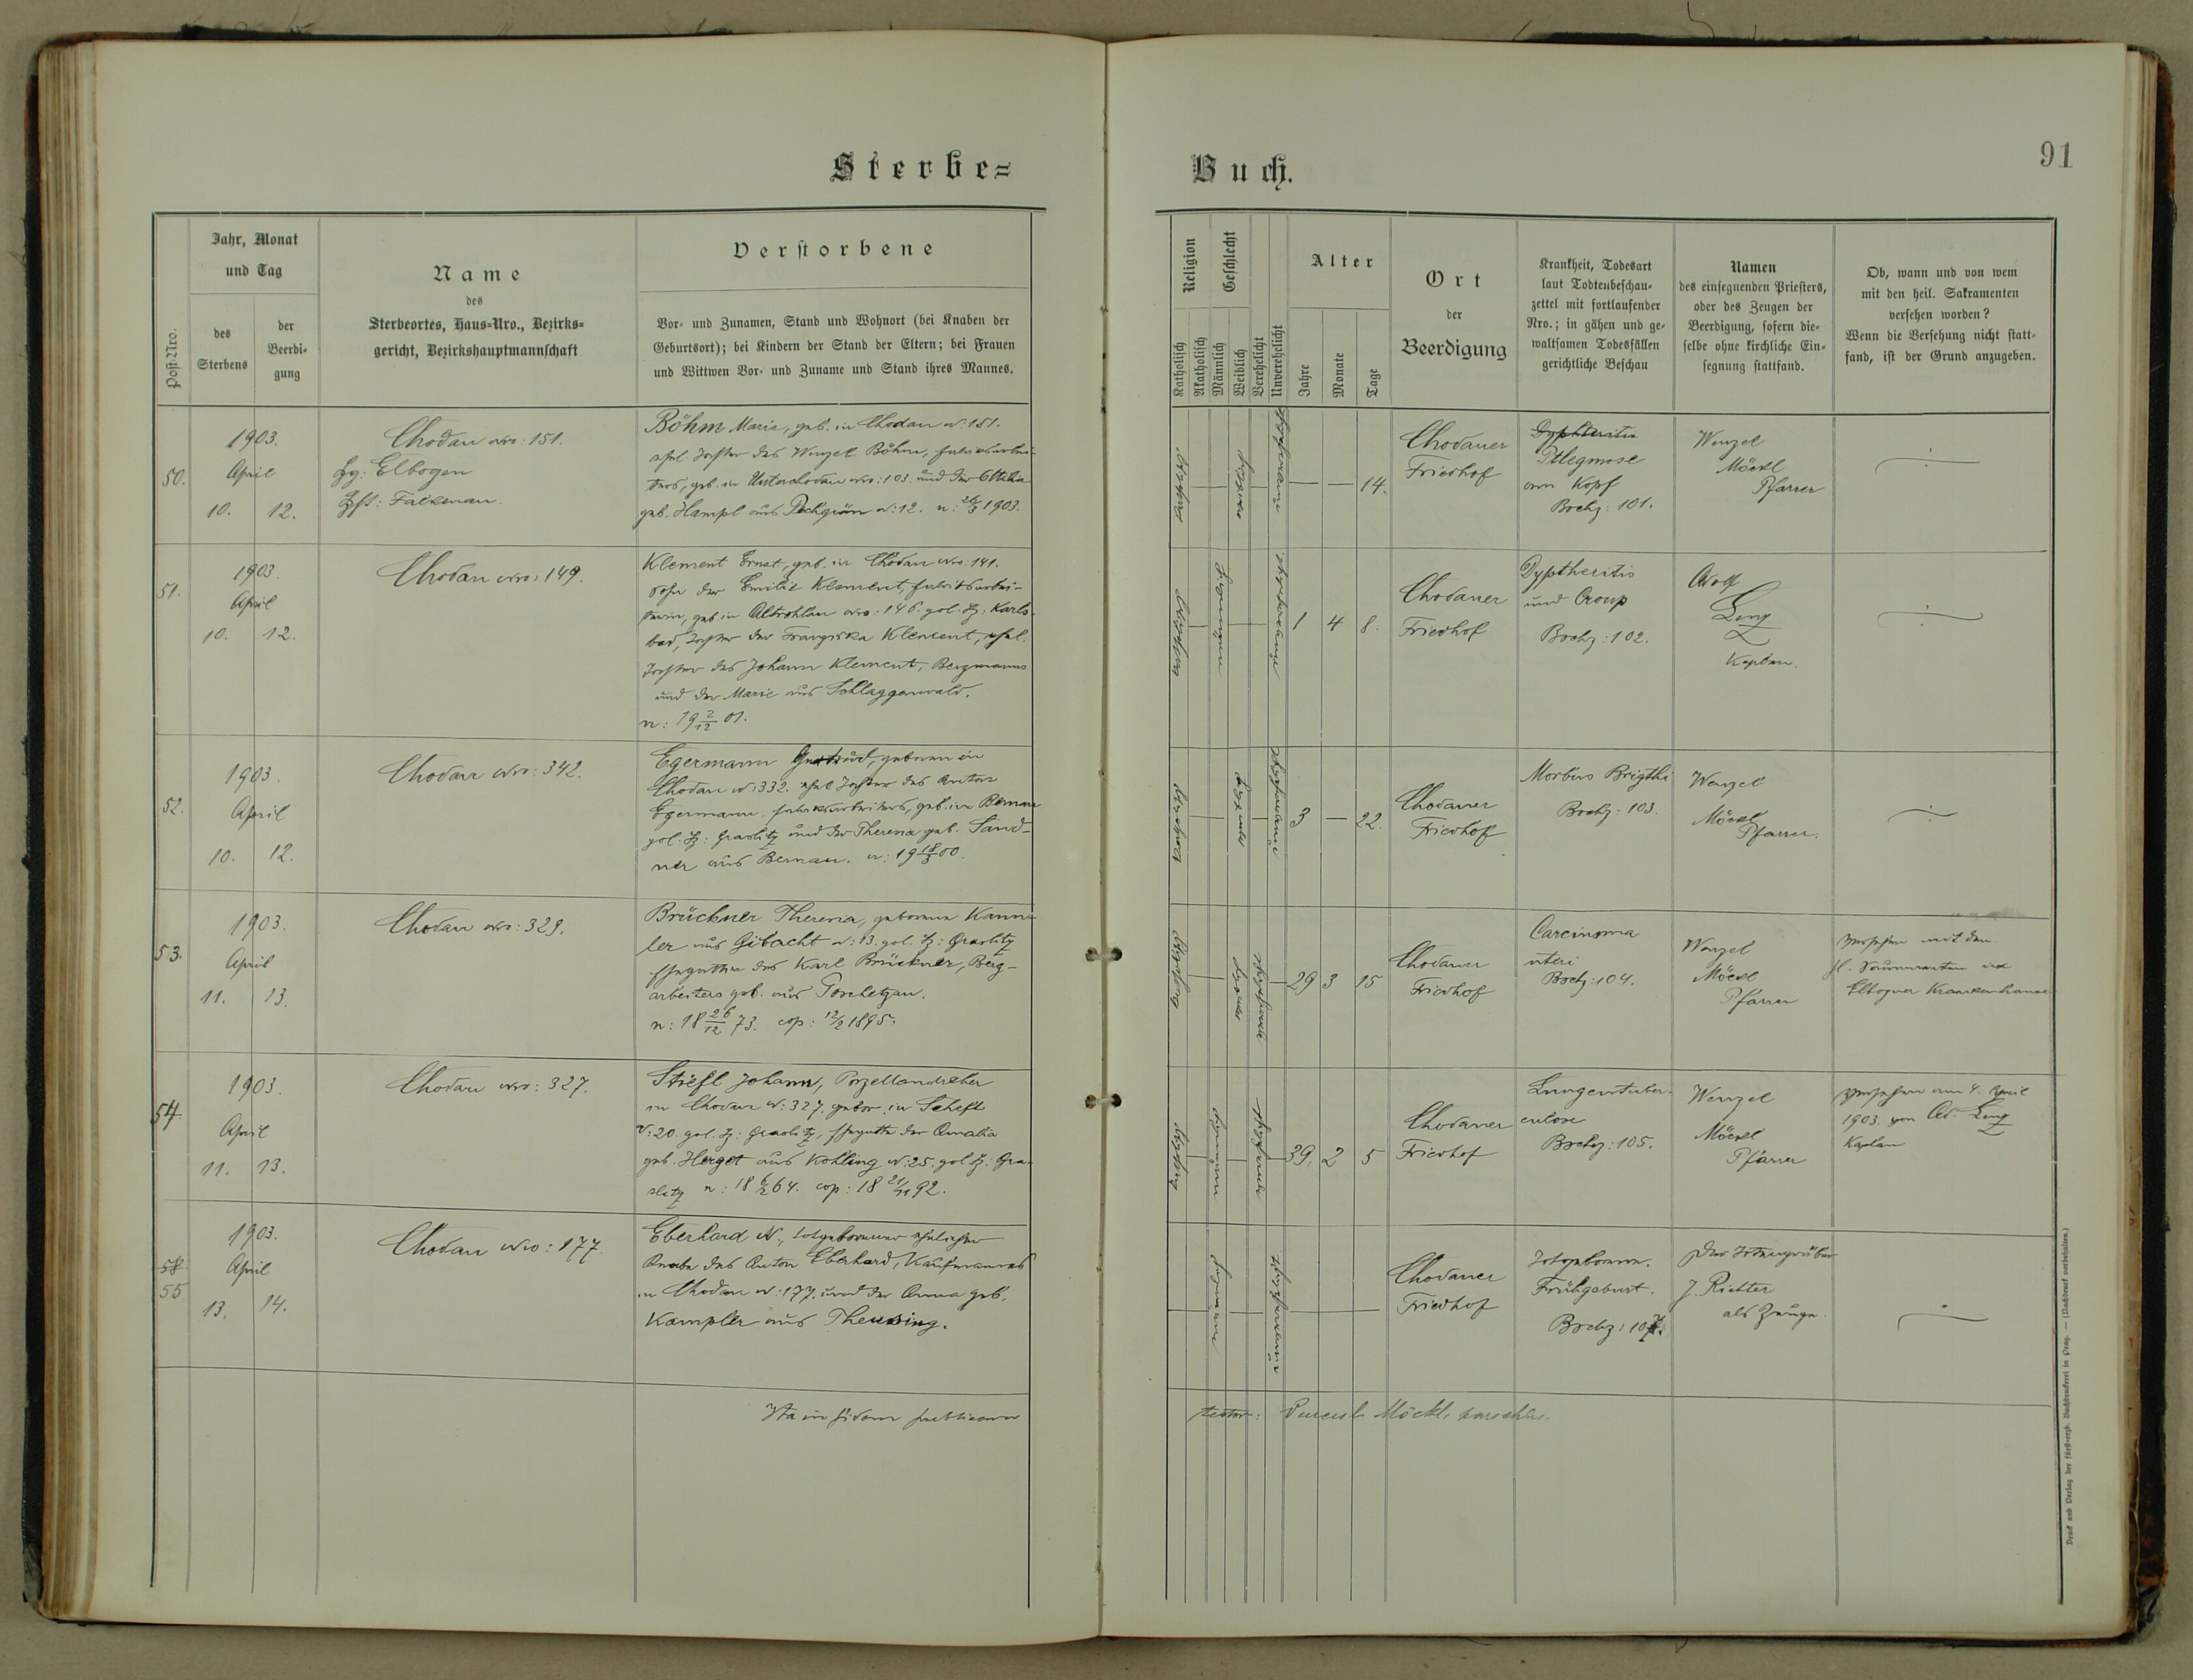 Sterbe=
Buch.
91
Post-Nro.
Jahr, Monat
und Tag
des
Sterbens
der
Beerdi-
gung
Name
des
Sterbeortes, Haus=Nro., Bezirks=
gericht, Bezirkshauptmannschaft
Verstorbene
Vor- und Zunamen, Stand und Wohnort (bei Knaben der
Geburtsort); bei Kindern der Stand der Eltern; bei Frauen
und Wittwen Vor- und Zuname und Stand ihres Mannes.
Religion
Katholisch
Akatholisch
Geschlecht
Männlich
Weiblich
Verehelicht
Unverehelicht
Alter
Jahre
Monate
Tage
Ort
der
Beerdigung
Krankheit, Todesart
laut Todtenbeschau-
zettel mit fortlaufender
Nro.; in gähen und ge-
waltsamen Todesfällen
gerichtliche Beschau
Namen
des einsegnenden Priesters,
oder des Zeugen der
Beerdigung, sofern die-
selbe ohne kirchliche Ein-
segnung stattfand.
Ob, wann und von wem
mit den heil. Sakramenten
versehen worden?
Wenn die Versehung nicht statt-
fand, ist der Grund anzugeben.
50.
1903.
April
10. 12.
Chodau Nro: 151.
Bg: Elbogen
Falkenau.
Böhm Marie, geb. in Chodau N: 151.
ehel. Tochter des Wenzel Böhm, Fabriksarbei-
ters, geb. in Unterchodau Nro: 103. und der Ottilia
geb. Hampl aus Pechgrün N: 12. n: 26/3 1903.
katholisch
weiblich
— — 14.
Chodauer
Friedhof
Dyphteritis
Phlegmose
am Kopf
Bschz: 101.
Wenzel
Möckl
Pfarrer
51.
1903.
April
10. 12.
Chodau Nro: 149.
Klement Ernst, geb. in Chodau Nro: 141.
Sohn der Emilie Klement, Fabriksarbei-
terin, geb. in Altrohlau Nro: 146. gol. Bz: Karls-
bad, Tochter der Franziska Klement, ehel.
Tochter des Johann Klement, Bergmanns
und der Marie aus Schlaggenwald.
n: 19 2/12 01.
1 4 8.
Chodauer
Friedhof
Dyptheritis
und Croup
Bschz: 102.
Adolf
Kaplan.
52.
1903.
April
10. 12.
Chodau Nro: 342.
Egermann Gertrud, geboren in
Chodau N: 332. ehel. Tochter des Anton
Egermann, Fabriksarbeiters, geb. in Bernau
gol. Bz: Graslitz und der Theresia geb. Sand-
ner aus Bernau. n: 19 18/3 00.
3 — 22.
Chodauer
Friedhof
Morbus Brigthi
Bschz: 103.
Wenzel
Möckl
Pfarrer.
53.
1903.
April
11. 13.
Chodau Nro: 329.
Brückner Theresia, geborene
ler aus Gibacht N: 13. gol. Bz: Graslitz
Ehegattin des Karl Brückner, Berg-
arbeiters geb. aus Poschetzau.
n: 18 26/12 73. cop: 12/2 1895.
29 3 15
Chodauer
Friedhof
Carcinoma
uteri
Bschz: 104.
Wenzel
Möckl
Pfarrer
versehen mit den
hl. Sakramenten im
Elbogner Krankenhause
54
1903.
April
11. 13.
Chodau Nro: 327.
Stiefl Johann, Porzellandreher
in Chodau N: 327. gebor. in Scheft
N: 20. gol. Bz: Graslitz, Ehegatte der Amalia
geb. Herget aus Kohling N: 25. gol. Bz: Gra-
slitz n: 18 6/2 64. cop: 18 21/11 92.
39. 2 5
Chodauer
Friedhof
Lungentuber-
culose
Bschz: 105.
Wenzel
Möckl
Pfarrer
versehen am 4. April
1903. von Ad.
Kaplan
55.
1903.
April
13. 14.
Chodau Nro: 177.
Eberhard N., totgeborener ehelicher
Knabe des Anton Eberhard, Kaufmannes
in Chodau N: 177. und der Anna geb.
Kampler aus Theusing.
Chodauer
Friedhof
Totgeboren.
Frühgeburt.
Bschz: 107.
Der Totengräber
J. Richter
als Zeuge.
Ita in fidem publicam
testor: Möckl, parochus.
Druck und Verlag der fürst-erzb. Buchdruckerei in Prag. — (Nachdruck vorbehalten.)